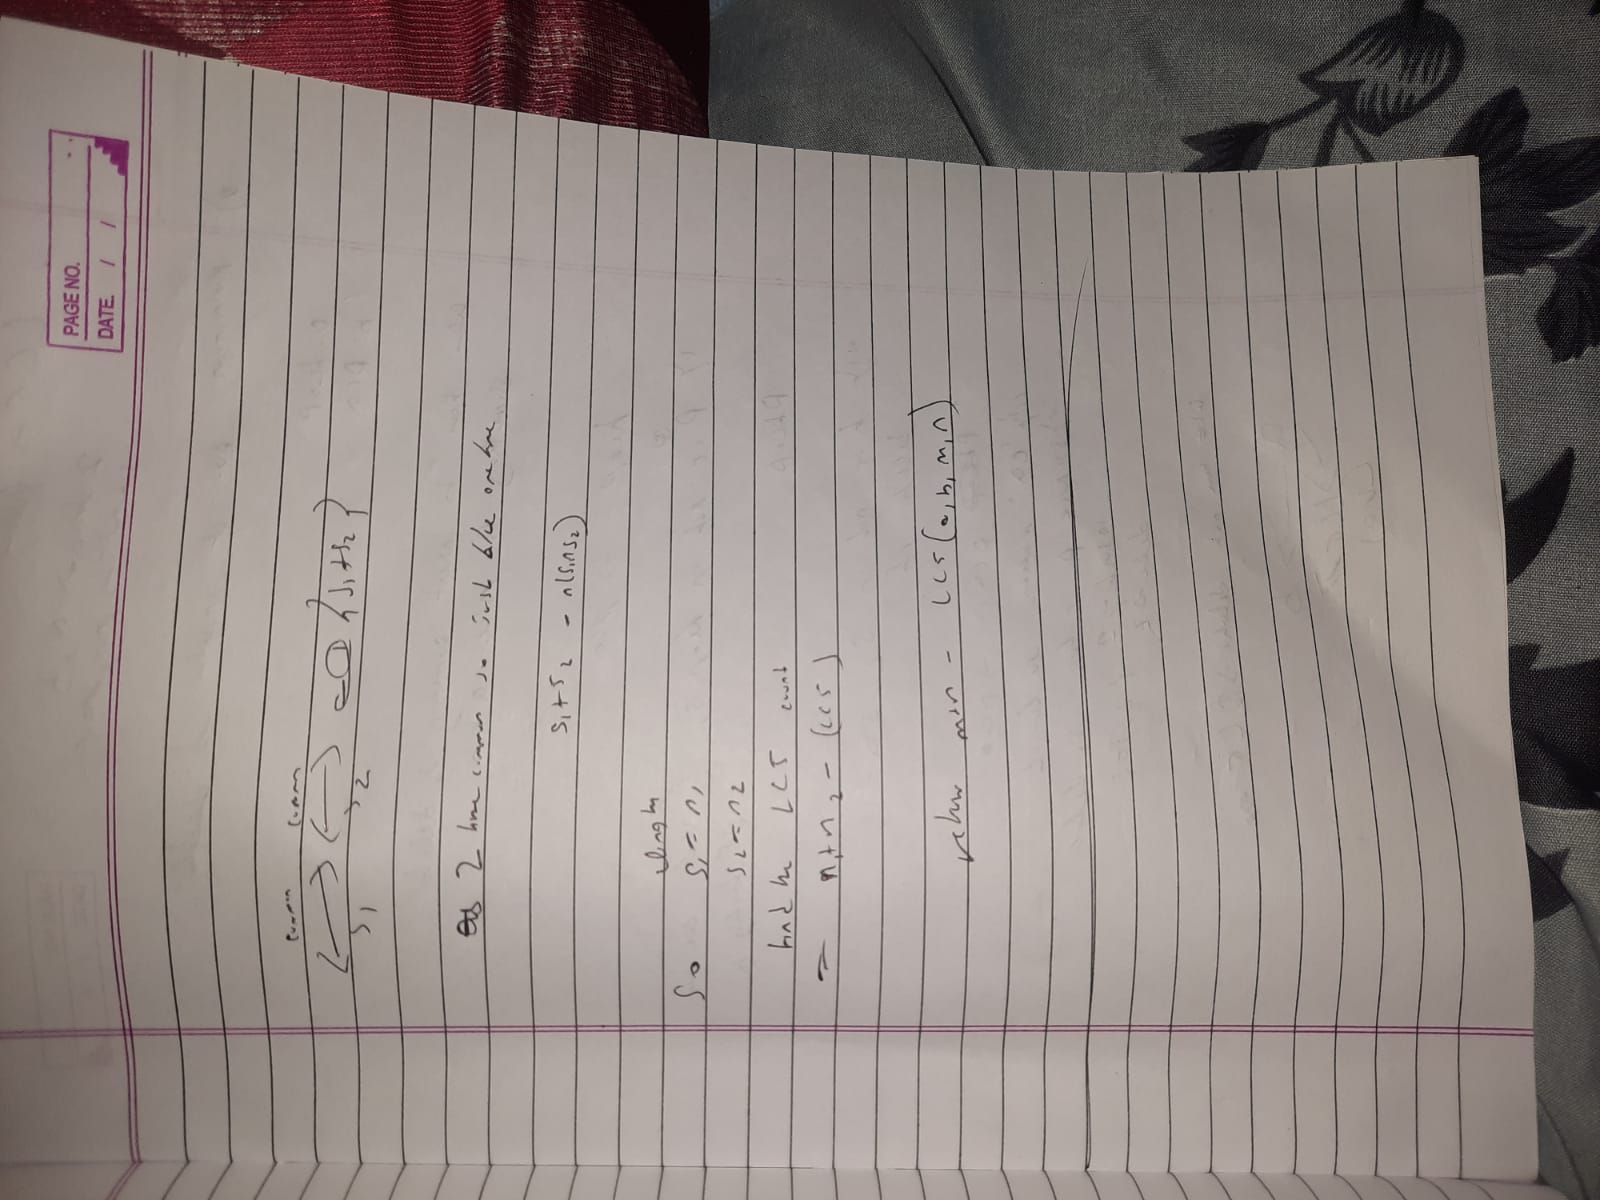 PAGE NO.
DATE. / /
common common
S1 S2 {S1+S2}
2 time common so just take one time
S1+S2 - n(S1∩S2)
length
So S1 = n1
S2 = n2
find the LCS count
= n1+n2 - (LCS)
return m+n - LCS(a, b, m, n)